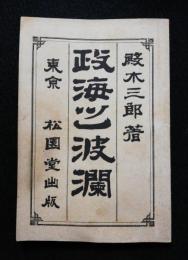 殿木三郎著
政海之波瀾
東京 松園堂出版